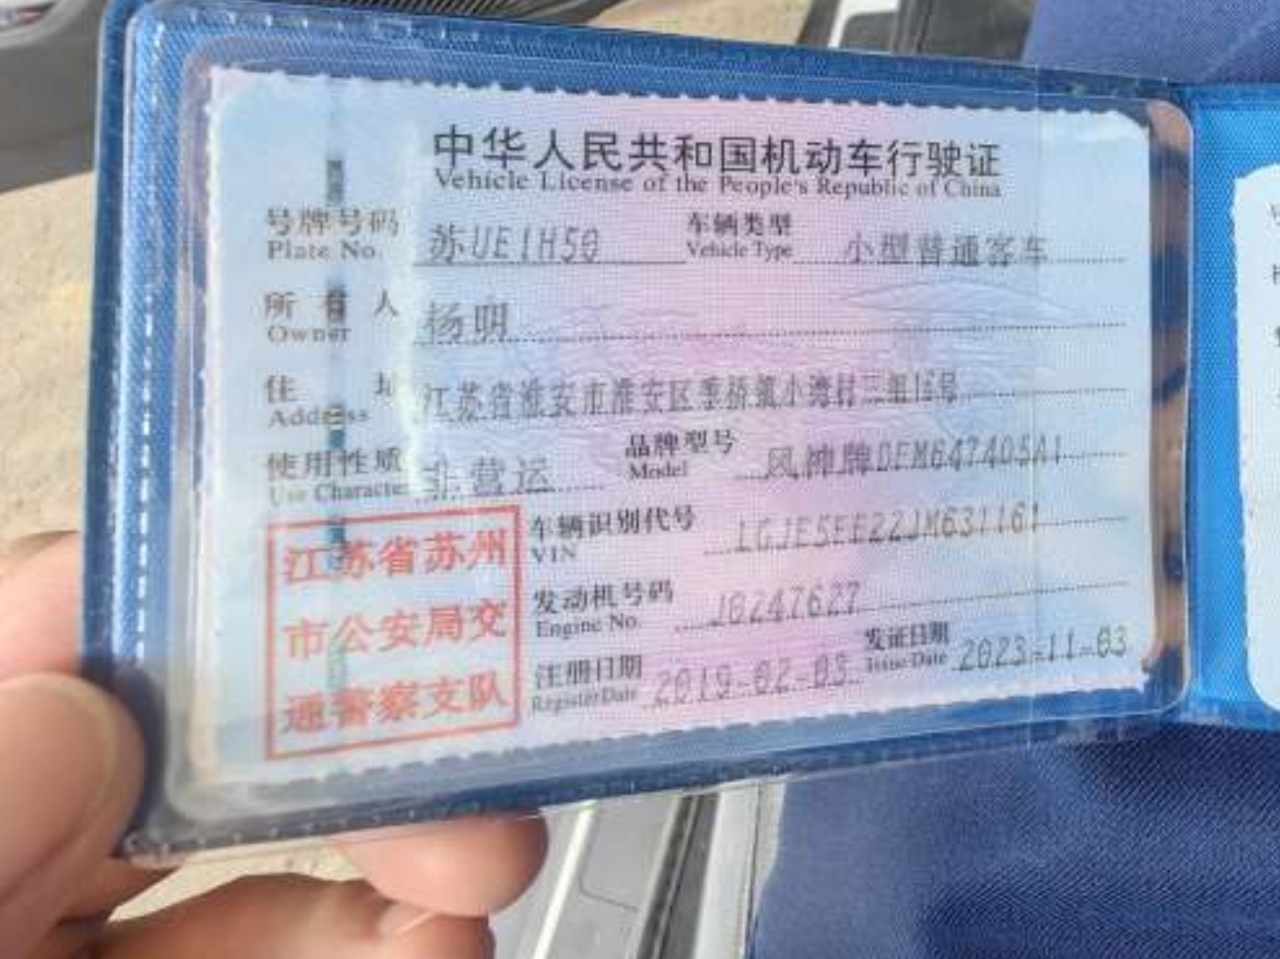 中华人民共和国机动车行驶证
Vehicle License of the People's Republic of China
号牌号码 苏UE1H50 车辆类型 小型普通客车
Plate No. Vehicle Type
所有人 杨明
Owner
住址 江苏省淮安市淮安区季桥镇小湾村三组16号
Address
使用性质 非营运 品牌型号 风神牌DFM6474G5A1
Use Character Model
江苏省苏州
市公安局交
通警察支队
车辆识别代号
VIN
发动机号码 J0247627
Engine No.
注册日期 2019-02-03 发证日期 2023-11-03
Register Date Issue Date